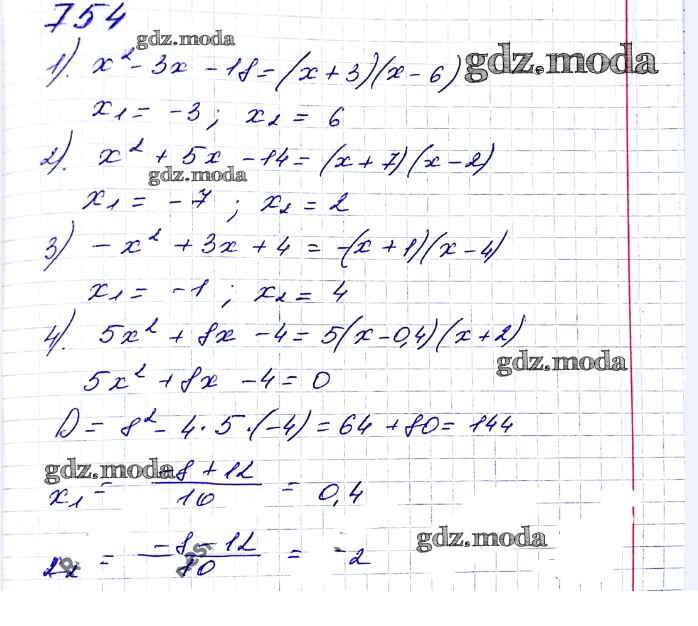 754
gdz.moda
1). x² - 3x - 18 = (x + 3)(x - 6) gdz.moda
x₁ = -3; x₂ = 6
2). x² + 5x - 14 = (x + 7)(x - 2)
gdz.moda
x₁ = -7; x₂ = 2
3) -x² + 3x + 4 = -(x + 1)(x - 4)
x₁ = -1; x₂ = 4
4). 5x² + 8x - 4 = 5(x - 0,4)(x + 2)
gdz.moda
5x² + 8x - 4 = 0
D = 8² - 4·5·(-4) = 64 + 80 = 144
gdz.moda
x₁ = (-8 + 12)/10 = 0,4
gdz.moda
x₂ = (-8 - 12)/10 = -2